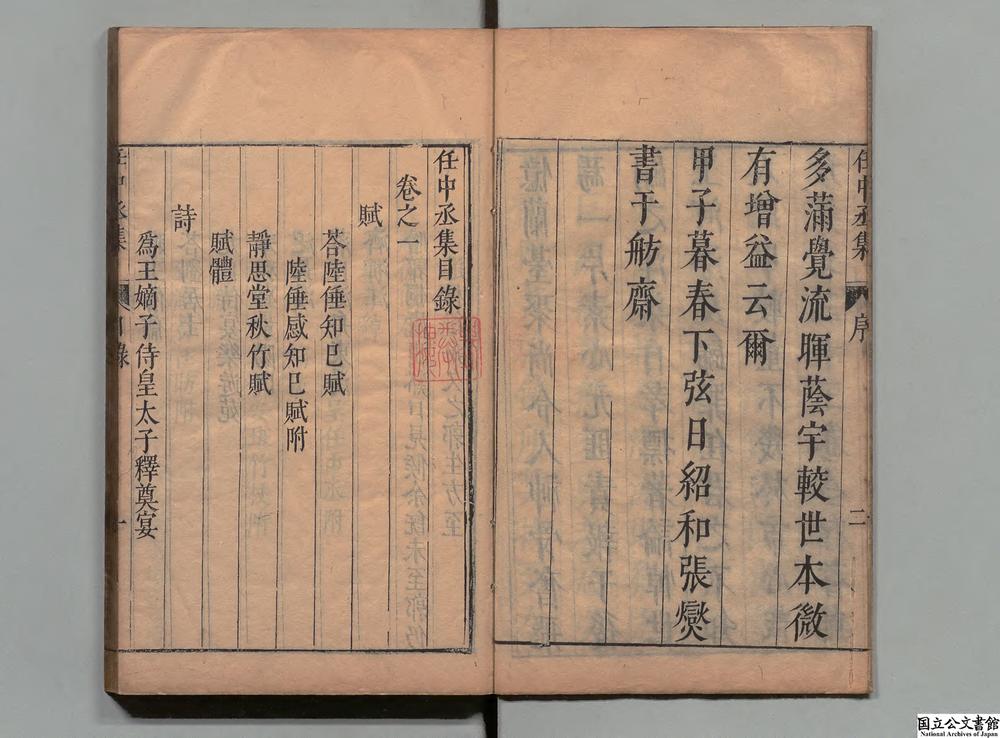 任中丞集 序 二
多蒲覺流暉蔭宇較世本微
有增益云爾
甲子暮春下弦日紹和張燮
書于舫齋
任中丞集目錄
卷之一
賦
荅陸倕知已賦
陸倕感知已賦附
靜思堂秋竹賦
賦體
詩
爲王嫡子侍皇太子釋奠宴
任中丞集 目錄 一
国立公文書館
National Archives of Japan